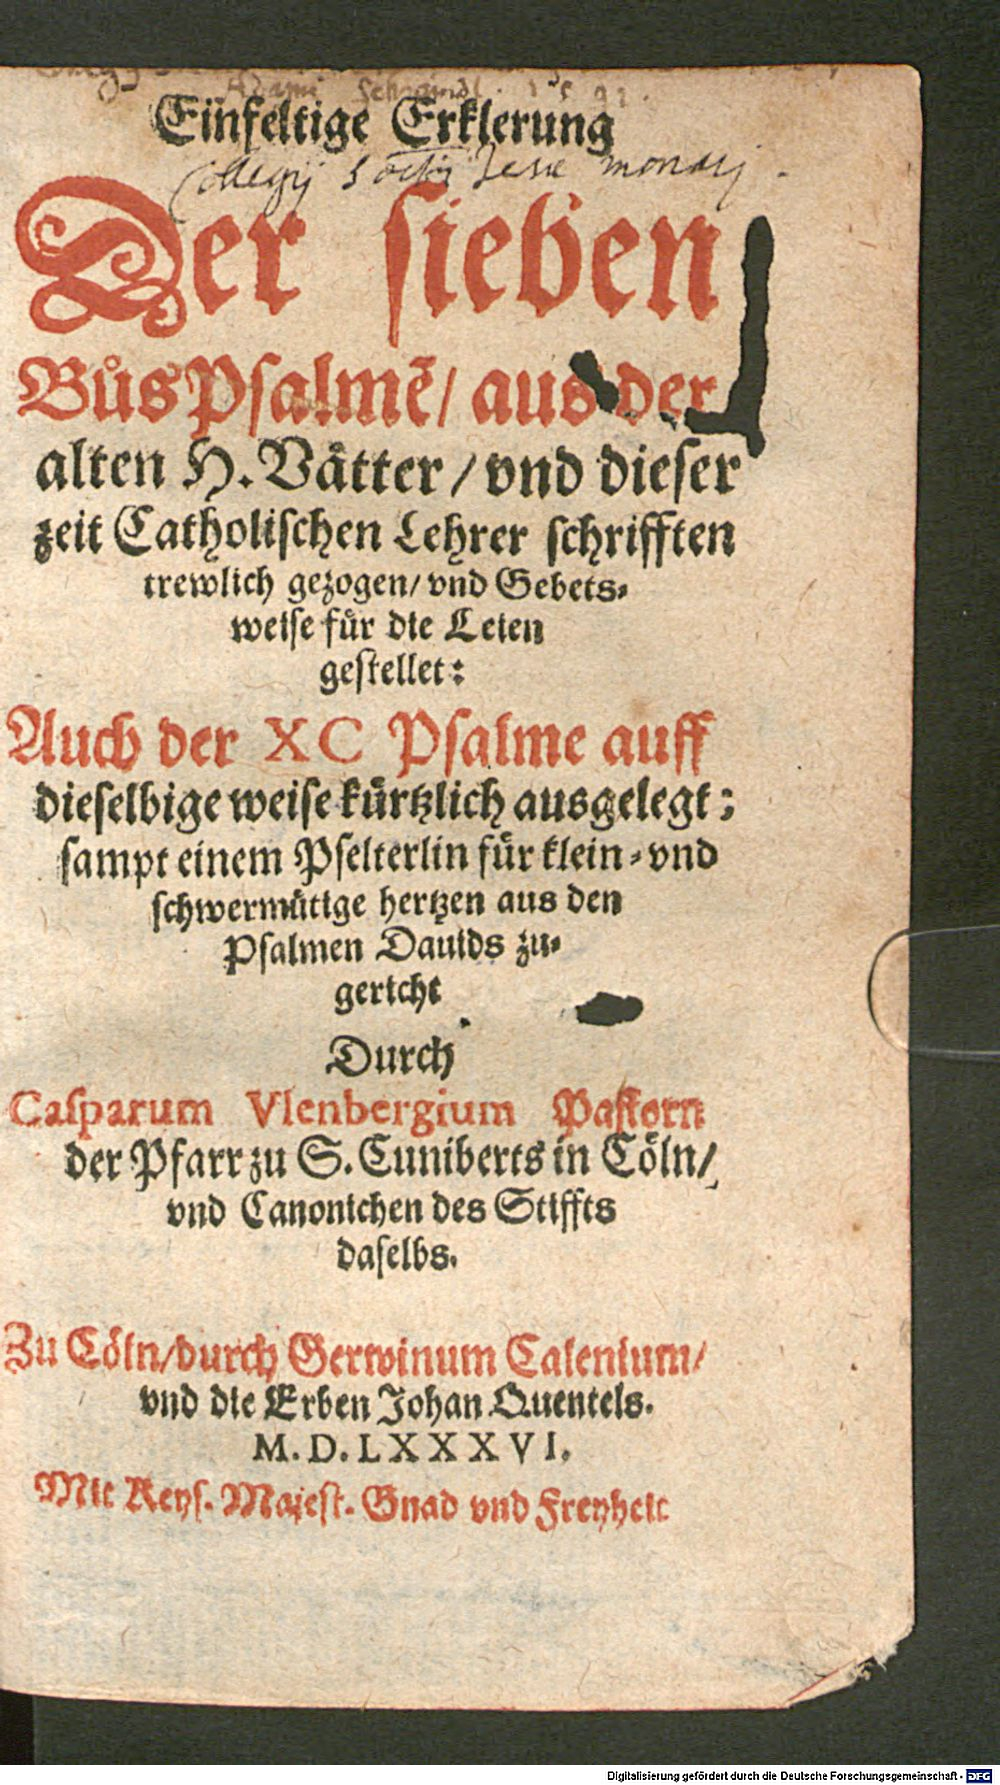 Adami Schmidl. 1591.
Einfeltige Erklerung
Collegij Soctis Jesu monarj
Der sieben
Bůs Psalmẽ/ aus der
alten H. Våtter/ vnd dieser
zeit Catholischen Lehrer schrifften
trewlich gezogen/ vnd Gebets⸗
weise für die Leien
gestellet:
Auch der XC Psalme auff
dieselbige weise kürtzlich ausgelegt:
sampt einem Pselterlin für klein⸗ vnd
schwermütige hertzen aus den
Psalmen Dauids zu⸗
gericht
Durch
Casparum Vlenbergium Pastorn
der Pfarr zu S. Cuniberts in Cöln/
vnd Canonichen des Stiffts
daselbs.
Zu Cöln/durch Gerwinum Calenium/
vnd die Erben Johan Quentels.
M. D. L X X X V I.
Mit Keys. Majest. Gnad vnd Freyheit
Digitalisierung gefördert durch die Deutsche Forschungsgemeinschaft - DFG